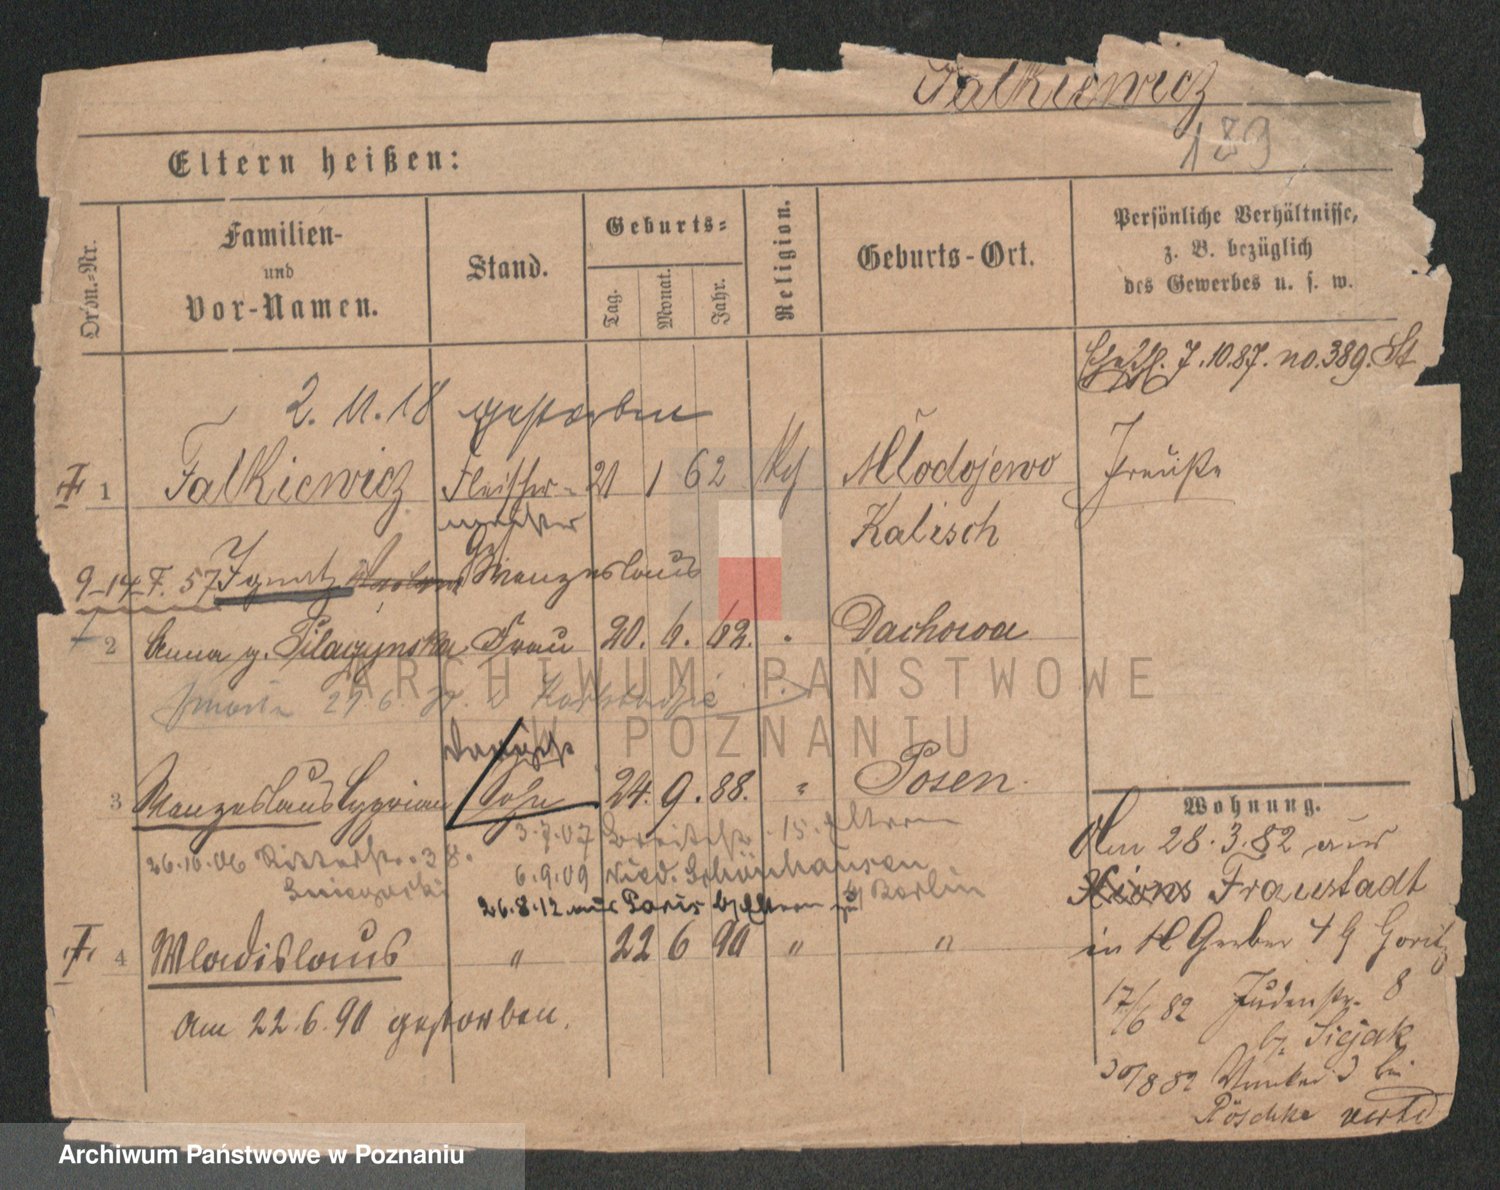 Falkiewicz
189
Eltern heißen:
Ordn.-Nr.
Familien-
und
Vor-Namen.
Stand.
Geburts-
Tag.
Monat.
Jahr.
Religion.
Geburts-Ort.
Persönliche Verhältnisse,
z. B. bezüglich
des Gewerbes u. s. w.
7.10.87. no. 389. St
2. 11. 18 gestorben
1 Falkiewicz Fleischer- 21 1 62 Kath Mlodojewo Preuße
meister Kalisch
9-14 F. 57 Ignatz Wenzeslaus
2 Anna g. Pilaczynska Frau 20. 6. 62. " Dachowa
3 Wenzeslaus Cyprian Sohn 24. 9. 88. " Posen
3.7.07 Breitestr. 15. Eltern
26.10.06 Ritterstr. 38.
6.9.09 Nied. Schönhausen b/ Berlin
26.8.12 aus Paris b/ Eltern zu
4 Wladislaus " 22 6 90 " "
am 22.6.90 gestorben.
Wohnung.
Am 28.3.82 aus
Xions Fraustadt
in Gerber 4 b Goritz
17/6 82 Judenstr. 8
b.
30/8 82 bei
Röschke
ARCHIWUM PAŃSTWOWE
W POZNANIU
Archiwum Państwowe w Poznaniu